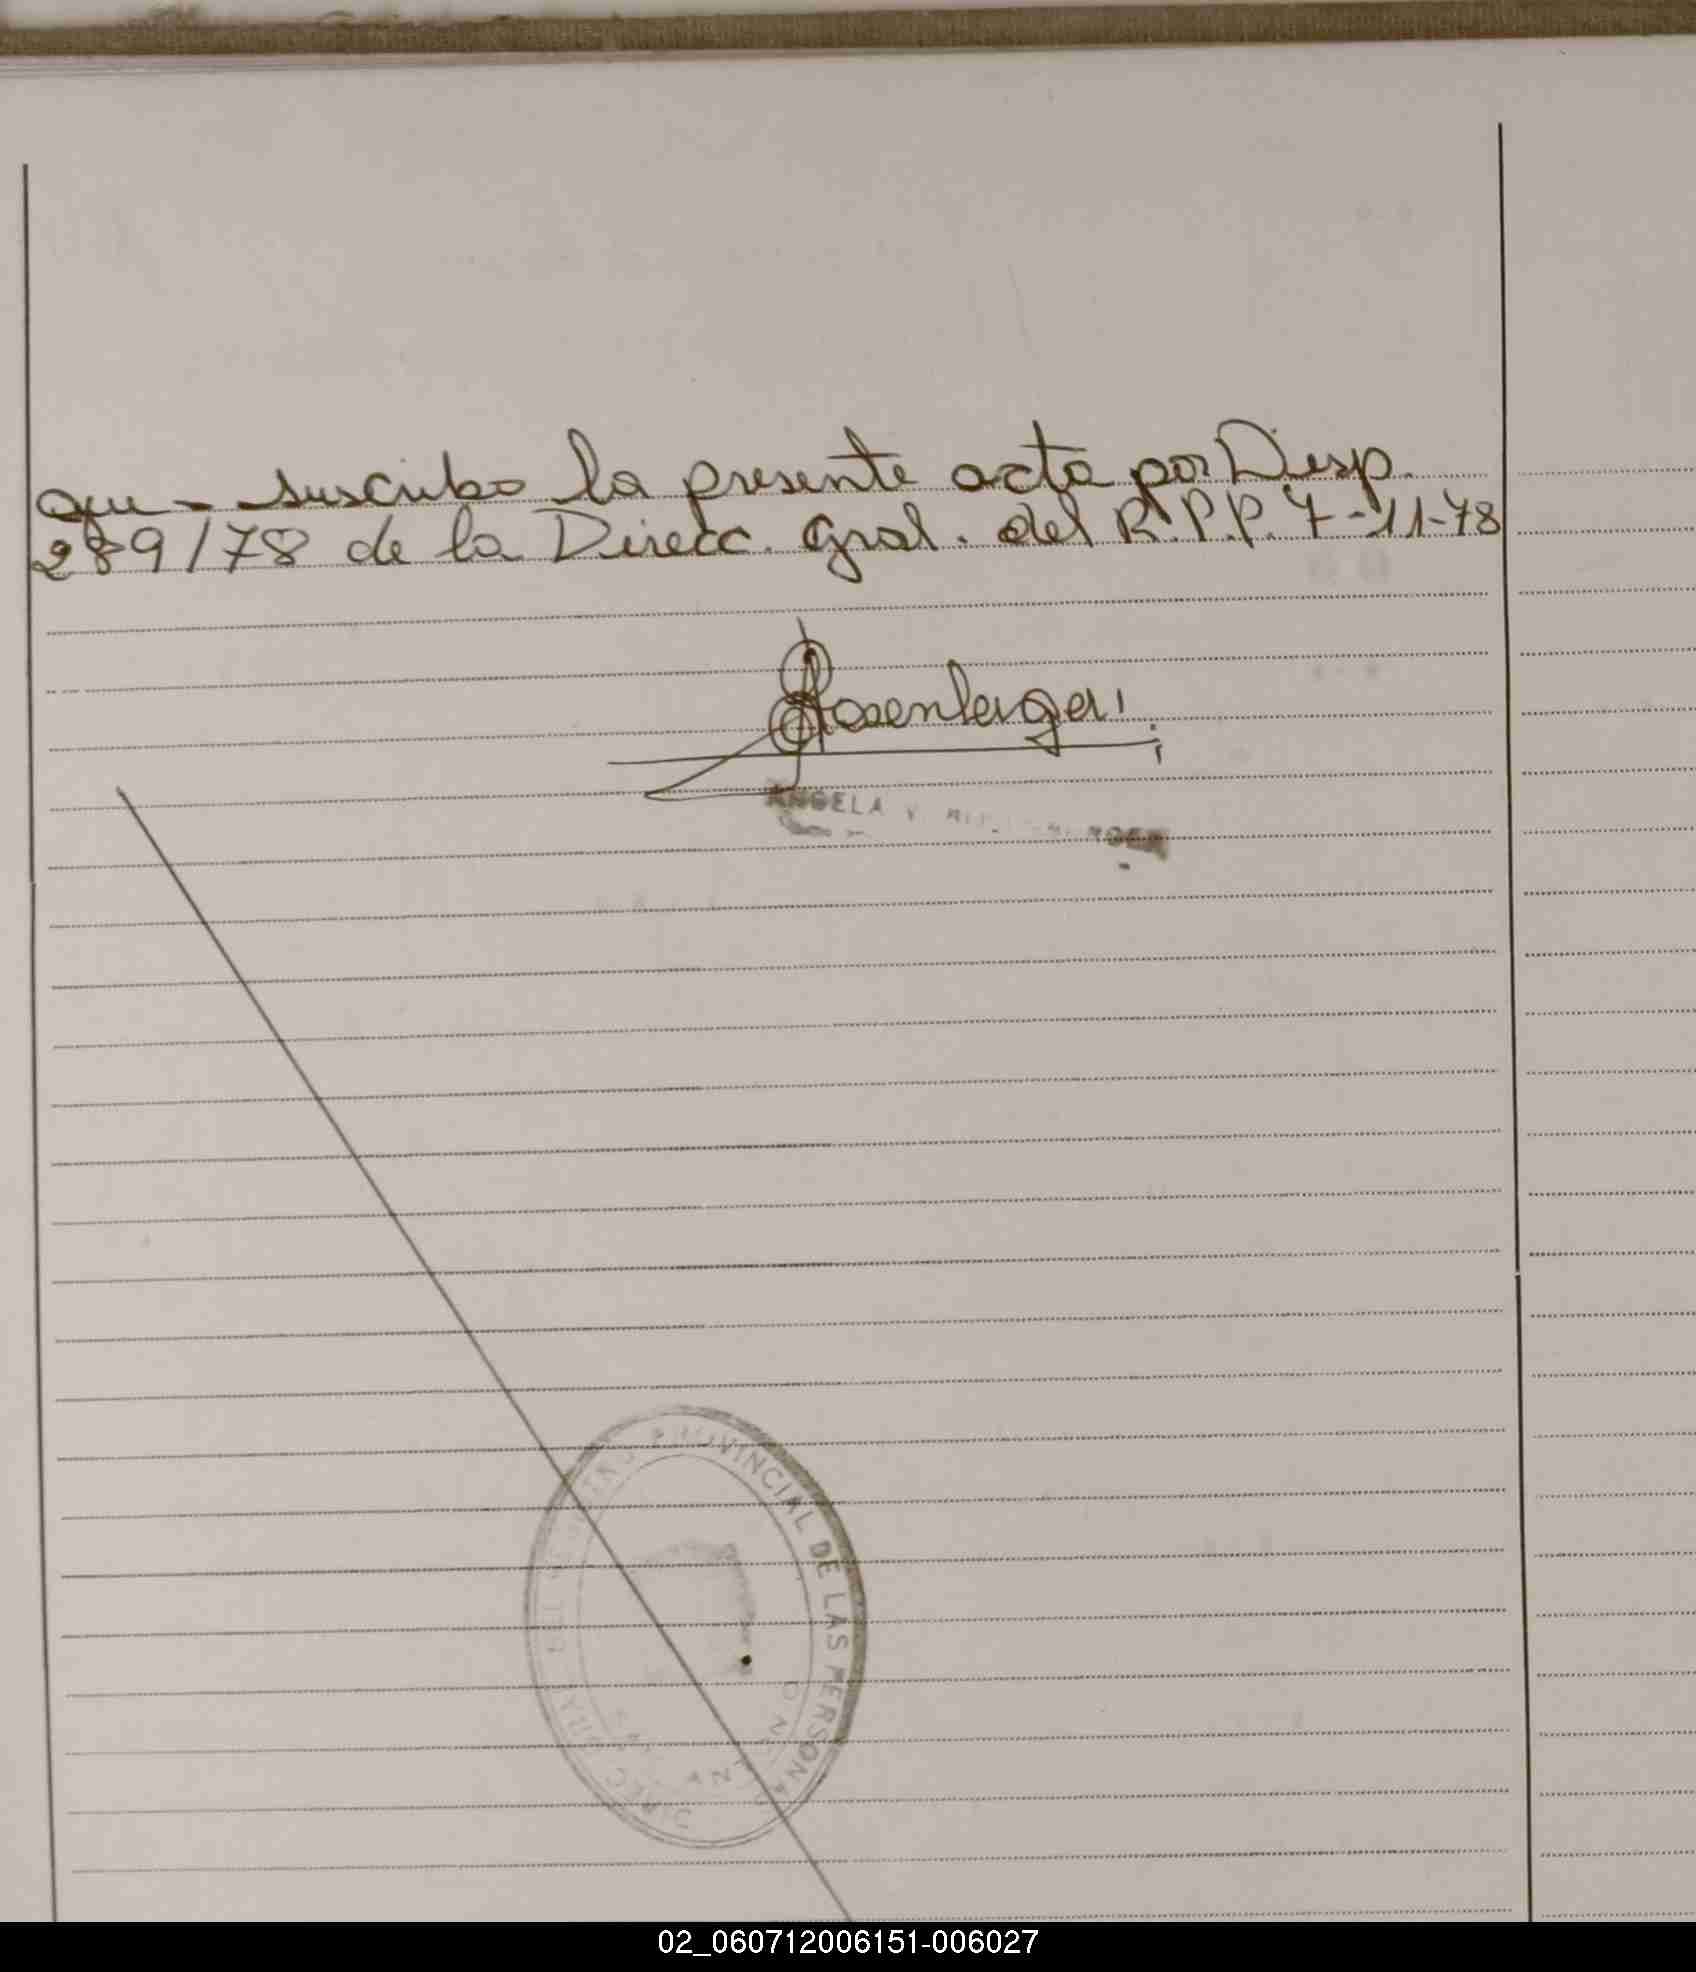 que suscribo la presente acta por Disp.
289/78 de la Direcc. Gral. del R.P.P. 7-11-78
Rosenberger
ANGELA
PROVINCIAL DE LAS PERSONAS
02_060712006151-006027